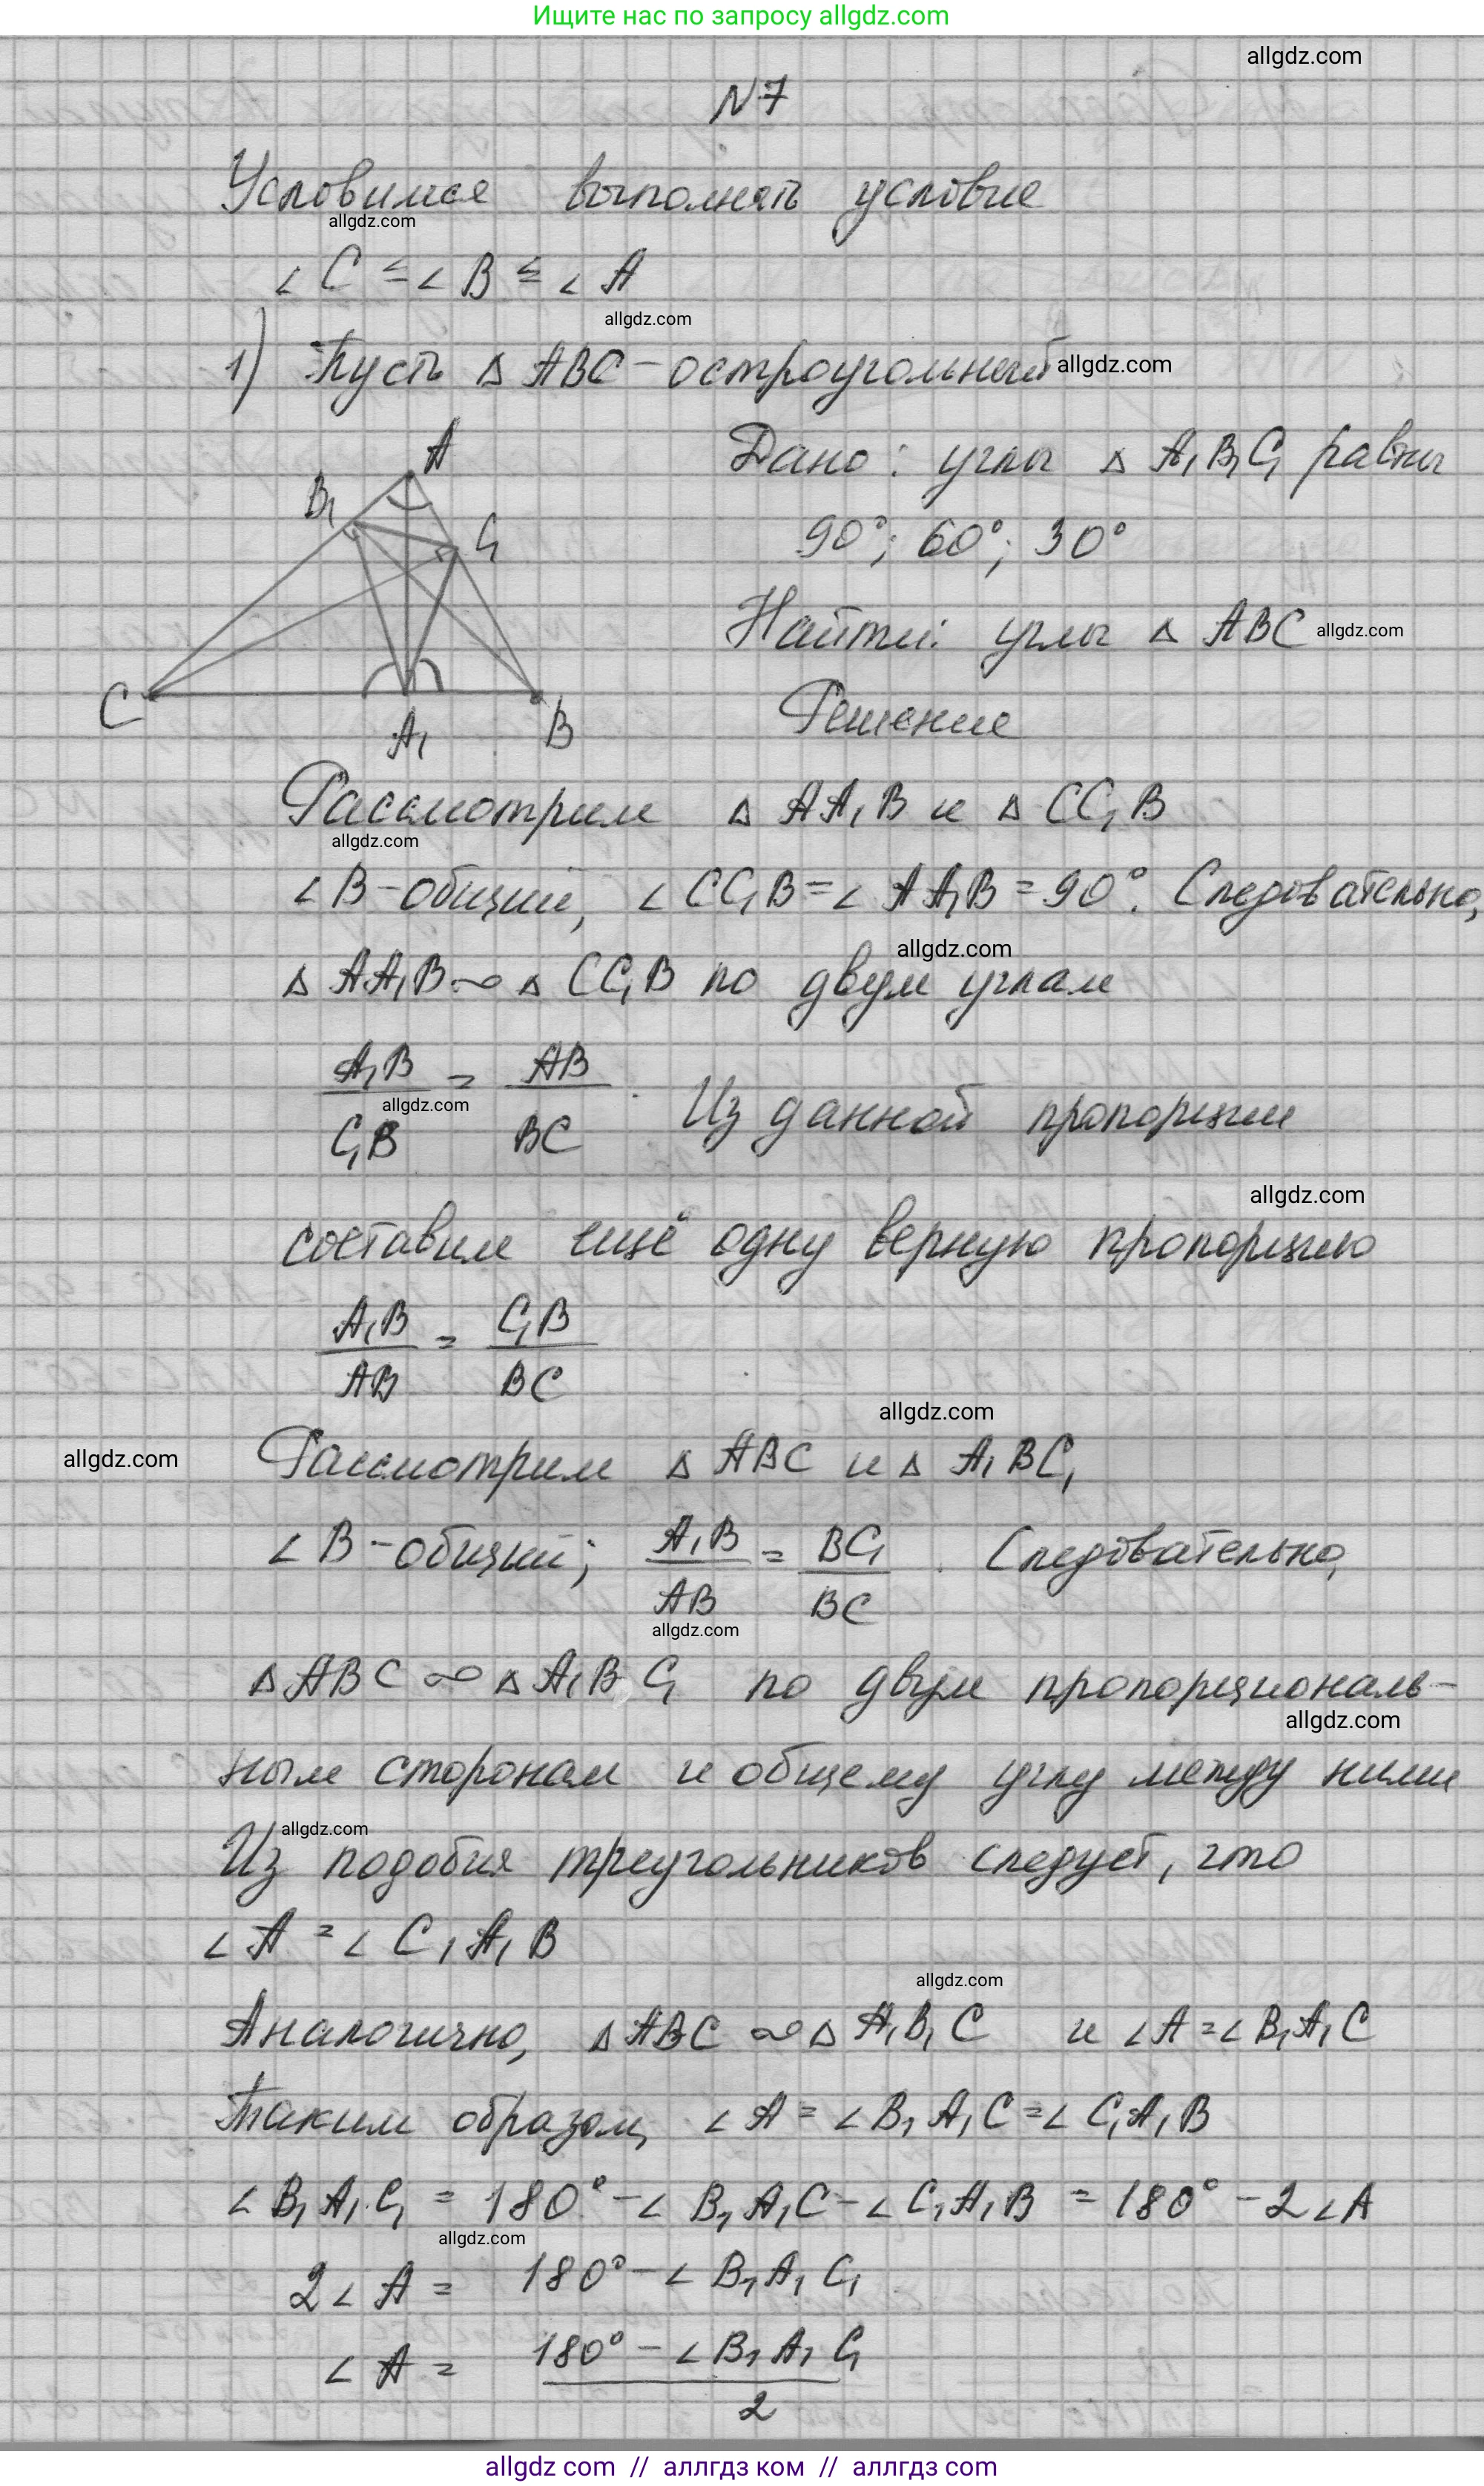 Ищите нас по запросу allgdz.com
allgdz.com
№7
Условимся выполнять условие
allgdz.com
∠C ≤ ∠B ≤ ∠A
allgdz.com
1) Пусть △ABC - остроугольный
allgdz.com
A
B₁
C₁
C
A₁
B
Дано: углы △A₁B₁C₁ равны
90°; 60°; 30°
Найти: углы △ABC
allgdz.com
Решение
Рассмотрим △AA₁B и △CC₁B
allgdz.com
∠B - общий, ∠CC₁B = ∠AA₁B = 90°. Следовательно,
allgdz.com
△AA₁B ∞ △CC₁B по двум углам
A₁B/C₁B = AB/BC. Из данной пропорции
allgdz.com
allgdz.com
составим ещё одну верную пропорцию
A₁B/AB = C₁B/BC
allgdz.com
allgdz.com
Рассмотрим △ABC и △A₁BC₁
∠B - общий; A₁B/AB = BC₁/BC. Следовательно,
allgdz.com
△ABC ∞ △A₁BC₁ по двум пропорциональ-
allgdz.com
ным сторонам и общему углу между ними
allgdz.com
Из подобия треугольников следует, что
∠A = ∠C₁A₁B
allgdz.com
Аналогично, △ABC ∞ △A₁B₁C и ∠A = ∠B₁A₁C
Таким образом, ∠A = ∠B₁A₁C = ∠C₁A₁B
∠B₁A₁C₁ = 180° - ∠B₁A₁C - ∠C₁A₁B = 180° - 2∠A
allgdz.com
2∠A = 180° - ∠B₁A₁C₁
∠A = (180° - ∠B₁A₁C₁)/2
allgdz com // аллгдз ком // аллгдз com